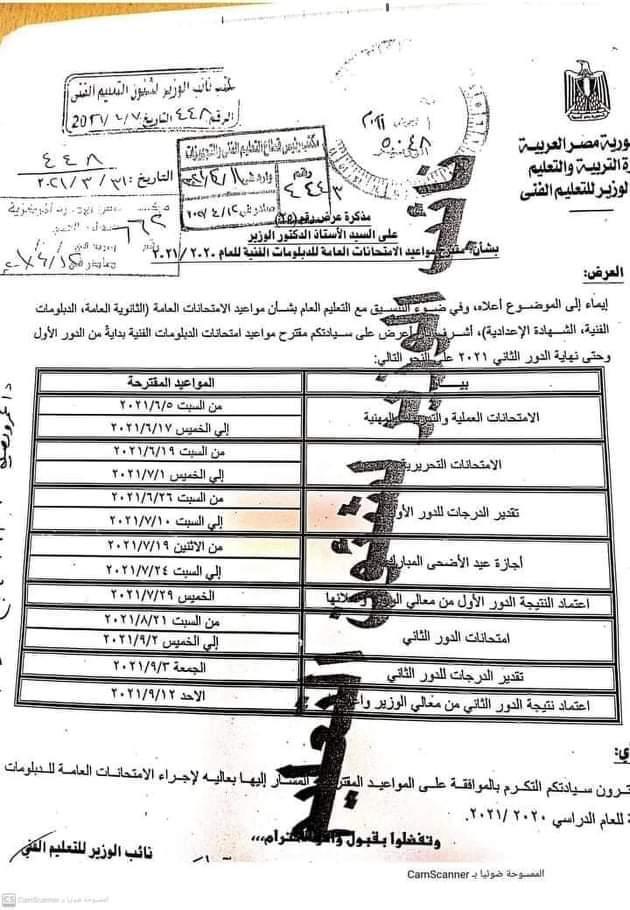 جمهورية مصر العربية
وزارة التربية والتعليم
نائب الوزير للتعليم الفني
مكتب نائب الوزير لشئون التعليم الفنى
الرقم ٤٤٨ التاريخ
٤٤٨
التاريخ: ٢٠٢١/٣/٣١
مكتب رئيس قطاع التعليم الفني والتجهيزات
٤٤٣
٥٠٤٨
٦٦٢
مذكرة عرض رقم (٢٥)
على السيد الأستاذ الدكتور الوزير
بشأن: مقترح مواعيد الامتحانات العامة للدبلومات الفنية للعام ٢٠٢١/٢٠٢٠
العرض:
إيماء إلى الموضوع أعلاه، وفي ضوء التنسيق مع التعليم العام بشأن مواعيد الامتحانات العامة (الثانوية العامة، الدبلومات
الفنية، الشهادة الإعدادية)، أشرف بأن أعرض على سيادتكم مقترح مواعيد امتحانات الدبلومات الفنية بداية من الدور الأول
وحتى نهاية الدور الثاني ٢٠٢١ على النحو التالي:
بيـــان المواعيد المقترحة
الامتحانات العملية والتدريبات المهنية من السبت ٢٠٢١/٦/٥
إلي الخميس ٢٠٢١/٦/١٧
الامتحانات التحريرية من السبت ٢٠٢١/٦/١٩
إلي الخميس ٢٠٢١/٧/١
تقدير الدرجات للدور الأول من السبت ٢٠٢١/٦/٢٦
إلي السبت ٢٠٢١/٧/١٠
أجازة عيد الأضحى المبارك من الأثنين ٢٠٢١/٧/١٩
إلي السبت ٢٠٢١/٧/٢٤
اعتماد النتيجة الدور الأول من معالي الوزير وإعلانها الخميس ٢٠٢١/٧/٢٩
امتحانات الدور الثاني من السبت ٢٠٢١/٨/٢١
إلي الخميس ٢٠٢١/٩/٢
تقدير الدرجات للدور الثاني الجمعة ٢٠٢١/٩/٣
اعتماد نتيجة الدور الثاني من معالي الوزير وإعلانها الاحد ٢٠٢١/٩/١٢
ترون سيادتكم التكرم بالموافقة على المواعيد المقترحة المشار إليها بعاليه لإجراء الامتحانات العامة للدبلومات
للعام الدراسي ٢٠٢١/٢٠٢٠.
وتفضلوا بقبول وافر الاحترام،،،
نائب الوزير للتعليم الفني
الممسوحة ضوئيا بـ CamScanner
CS CamScanner الممسوحة ضوئيا بـ